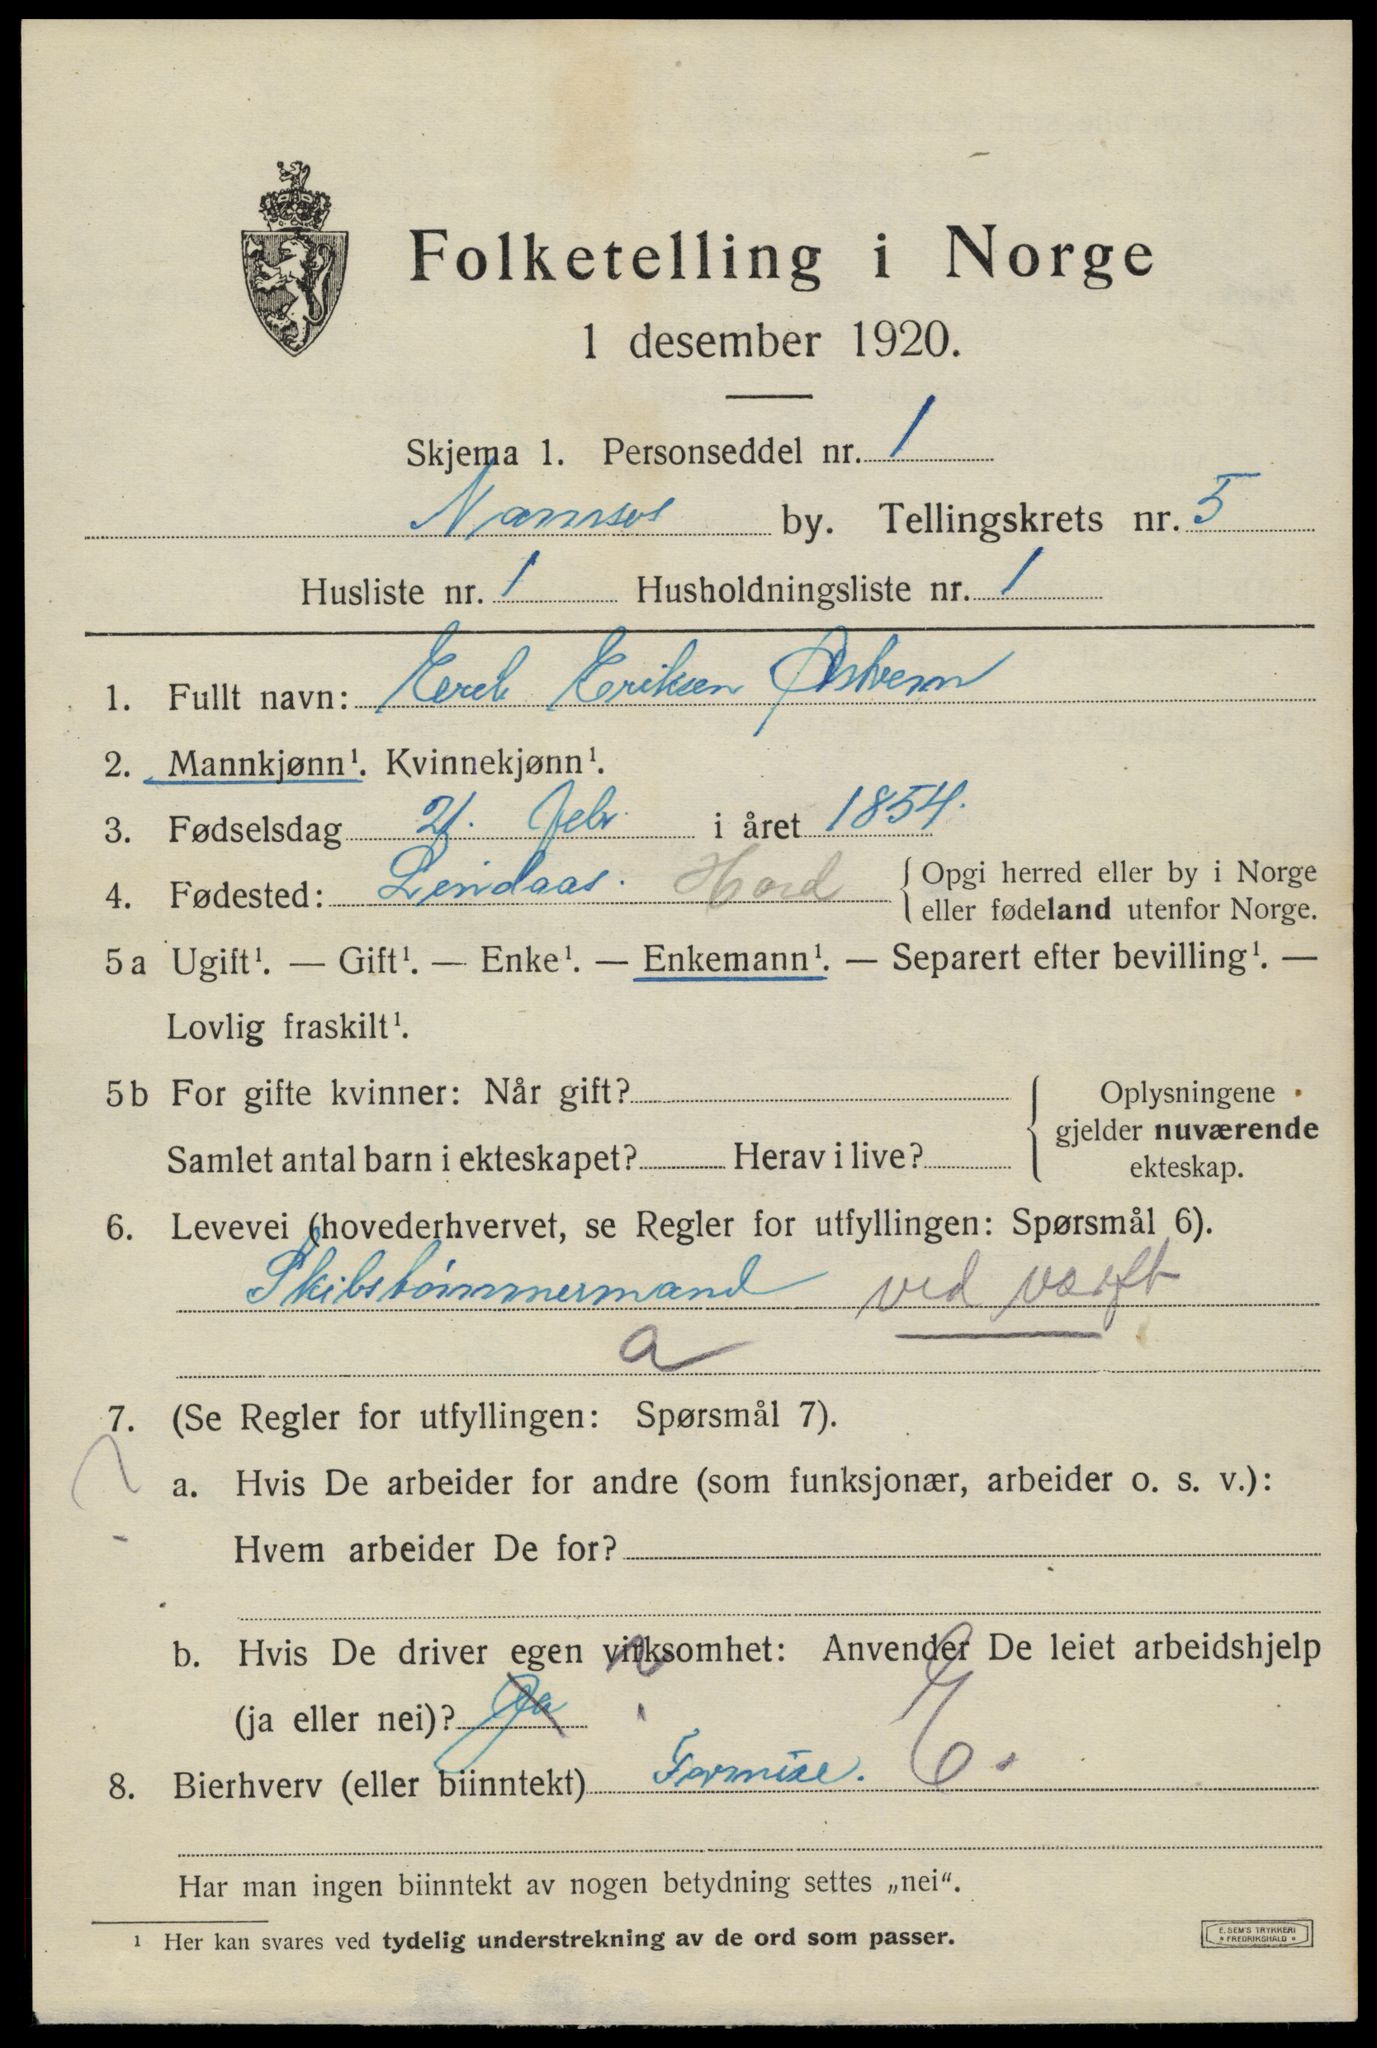 Folketelling i Norge
1 desember 1920.
Skjema 1. Personseddel nr. 1
Namsos by. Tellingskrets nr. 5
Husliste nr. 1 Husholdningsliste nr. 1
1. Fullt navn: Erik Eriksen
2. Mannkjønn¹. Kvinnekjønn¹.
3. Fødselsdag 21. Febr. i året 1854.
4. Fødested: Lindaas. Hord { Opgi herred eller by i Norge
eller fødeland utenfor Norge.
5a Ugift¹. — Gift¹. — Enke¹. — Enkemann¹. — Separert efter bevilling¹. —
Lovlig fraskilt¹.
5b For gifte kvinner: Når gift? { Oplysningene
gjelder nuværende
Samlet antal barn i ekteskapet? Herav i live? ekteskap.
6. Levevei (hovederhvervet, se Regler for utfyllingen: Spørsmål 6).
Skibstømmermand ved værft
a
7. (Se Regler for utfyllingen: Spørsmål 7).
a. Hvis De arbeider for andre (som funksjonær, arbeider o. s. v.):
Hvem arbeider De for?
b. Hvis De driver egen virksomhet: Anvender De leiet arbeidshjelp
(ja eller nei)? Ja ?
8. Bierhverv (eller biinntekt) Formue. E.
Har man ingen biinntekt av nogen betydning settes „nei“.
¹ Her kan svares ved tydelig understrekning av de ord som passer.
E. SEM'S TRYKKERI
* FREDRIKSHALD *